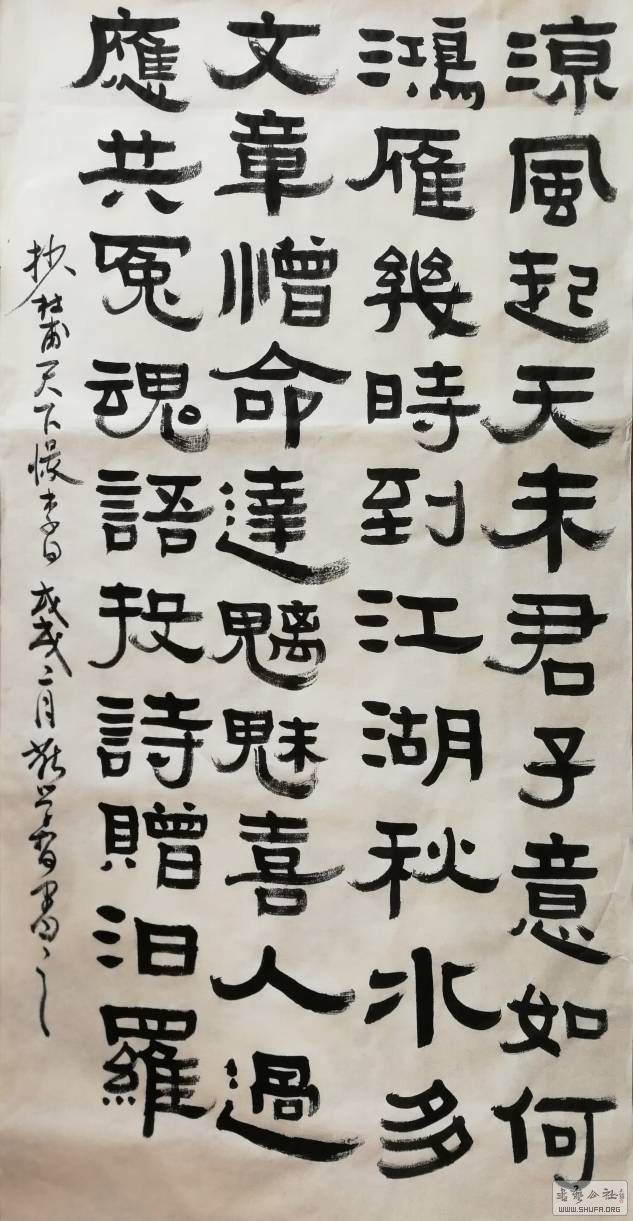 涼風起天末君子意如何
鴻雁幾時到江湖秋水多
文章憎命達魑魅喜人過
應共冤魂語投詩贈汨羅
抄杜甫天下懷李白 戊戌二月 書
書藝公社
WWW.SHUFA.ORG